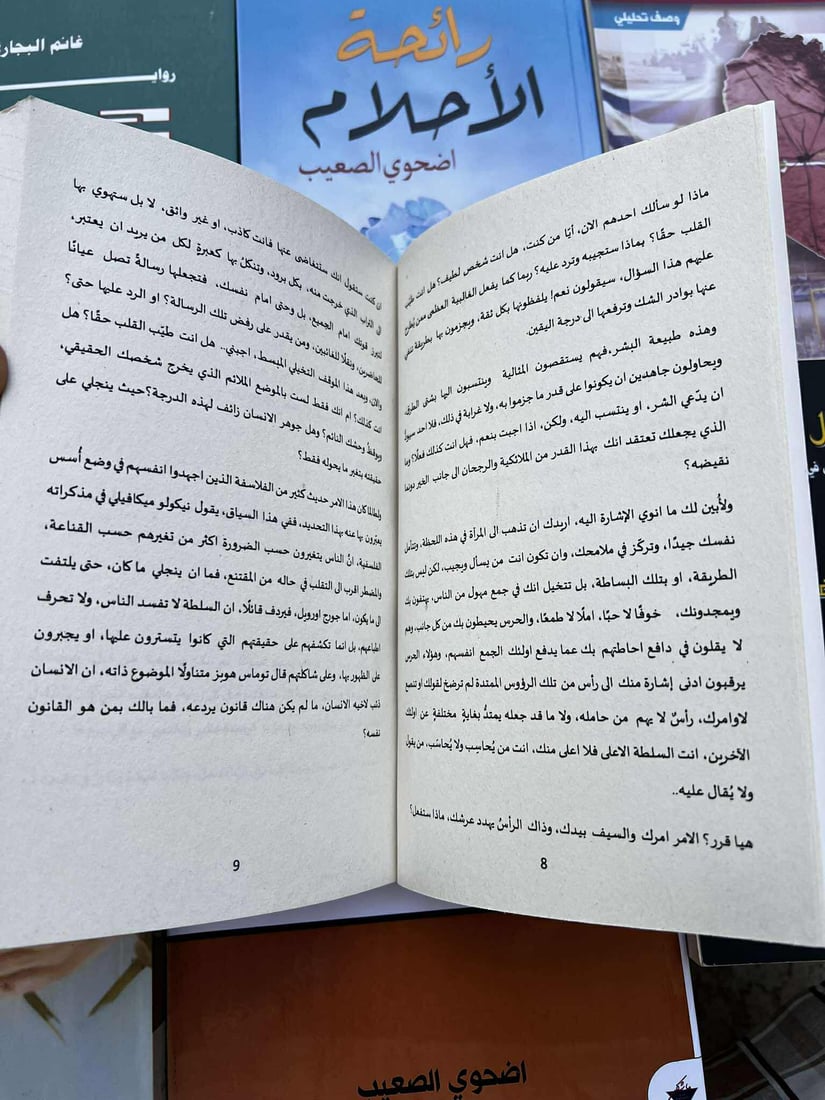 غانم البجاري
روايـــــــــة
رائحة
الأحلام
اضحوي الصعيب
وصف تحليلي
ماذا لو سألك احدهم الان، أيًا من كنت، هل انت شخص لطيف؟ هل انت طيّب
القلب حقًا؟ بماذا ستجيبه وترد عليه؟ ربما كما يفعل الغالبية العظمى ممن يُطرح
عليهم هذا السؤال، سيقولون نعم! يلفظونها بكل ثقة، ويجزمون بها بطريقة تنفي
عنها بوادر الشك وترفعها الى درجة اليقين.
وهذه طبيعة البشر،فهم يستقصون المثالية وينتسبون اليها بشتى الطرق،
ويحاولون جاهدين ان يكونوا على قدر ما جزموا به، ولا غرابة في ذلك، فلا احد سيودّ
ان يدّعي الشر، او ينتسب اليه، ولكن، اذا اجبت بنعم، فهل انت كذلك فعلًا؟ وما
الذي يجعلك تعتقد انك بهذا القدر من الملائكية والرجحان الى جانب الخير دونما
نقيضه؟
ولأُبين لك ما انوي الإشارة اليه، اريدك ان تذهب الى المرآة في هذه اللحظة، وتتأمل
نفسك جيدًا، وتركّز في ملامحك، وان تكون انت من يسأل ويجيب، لكن ليس بتلك
الطريقة، او بتلك البساطة، بل تتخيل انك في جمع مهول من الناس، يهتفون بك
ويمجدونك، خوفًا لا حبًا، املًا لا طمعًا، والحرس يحيطون بك من كل جانب، وهم
لا يقلون في دافع احاطتهم بك عما يدفع اولئك الجمع انفسهم، وهؤلاء الحرس
يرقبون ادنى إشارة منك الى رأس من تلك الرؤوس الممتدة لم ترضخ لقولك او تنصع
لاوامرك، رأسٌ لا يهم من حامله، ولا ما قد جعله يمتدُّ بغايةٍ مختلفةٍ عن اولئك
الآخرين، انت السلطة الاعلى فلا اعلى منك، انت من يُحاسِب ولا يُحاسَب، من يقول
ولا يُقال عليه..
هيا قرر؟ الامر امرك والسيف بيدك، وذاك الرأسُ يهدد عرشك، ماذا ستفعل؟
8
ان كنت ستقول انك ستتغاضى عنها فانت كاذب، او غير واثق، لا بل ستهوي بها
الى التراب الذي خرجت منه، بكل برود، وتنكلُ بها كعبرةٍ لكل من يريد ان يعتبر،
لتبرز قوتك امام الجميع، بل وحتى امام نفسك، فتجعلها رسالةً تصل عيانًا
للحاضرين، ونقلًا للغائبين، ومن يقدر على رفض تلك الرسالة؟ او الرد عليها حتى؟
والان، وبعد هذا الموقف التخيلي المبسط، اجبني.. هل انت طيّب القلب حقًا؟ هل
انت كذلك؟ ام انك فقط لست بالموضع الملائم الذي يخرج شخصك الحقيقي،
ويوقظُ وحشك النائم؟ وهل جوهر الانسان زائف لهذه الدرجة؟حيث ينجلي على
حقيقته بتغير ما يحوله فقط؟
ولطالما كان هذا الامر حديث كثير من الفلاسفة الذين اجهدوا انفسهم في وضع أُسس
يعبّرون بها عنه بهذا التحديد، ففي هذا السياق، يقول نيكولو ميكافيلي في مذكراته
الفلسفية، انَّ الناس يتغيرون حسب الضرورة اكثر من تغيرهم حسب القناعة،
والمضطر اقرب الى التقلب في حاله من المقتنع، فما ان ينجلي ما كان، حتى يلتفت
الى ما يكون، اما جورج اورويل، فيردف قائلًا، ان السلطة لا تفسد الناس، ولا تحرف
اطباعهم، بل انما تكشفهم على حقيقتهم التي كانوا يتسترون عليها، او يجبرون
على الظهور بها، وعلى شاكلتهم قال توماس هوبز متناولًا الموضوع ذاته، ان الانسان
ذئب لاخيه الانسان، ما لم يكن هناك قانون يردعه، فما بالك بمن هو القانون
نفسه؟
9
اضحوي الصعيب